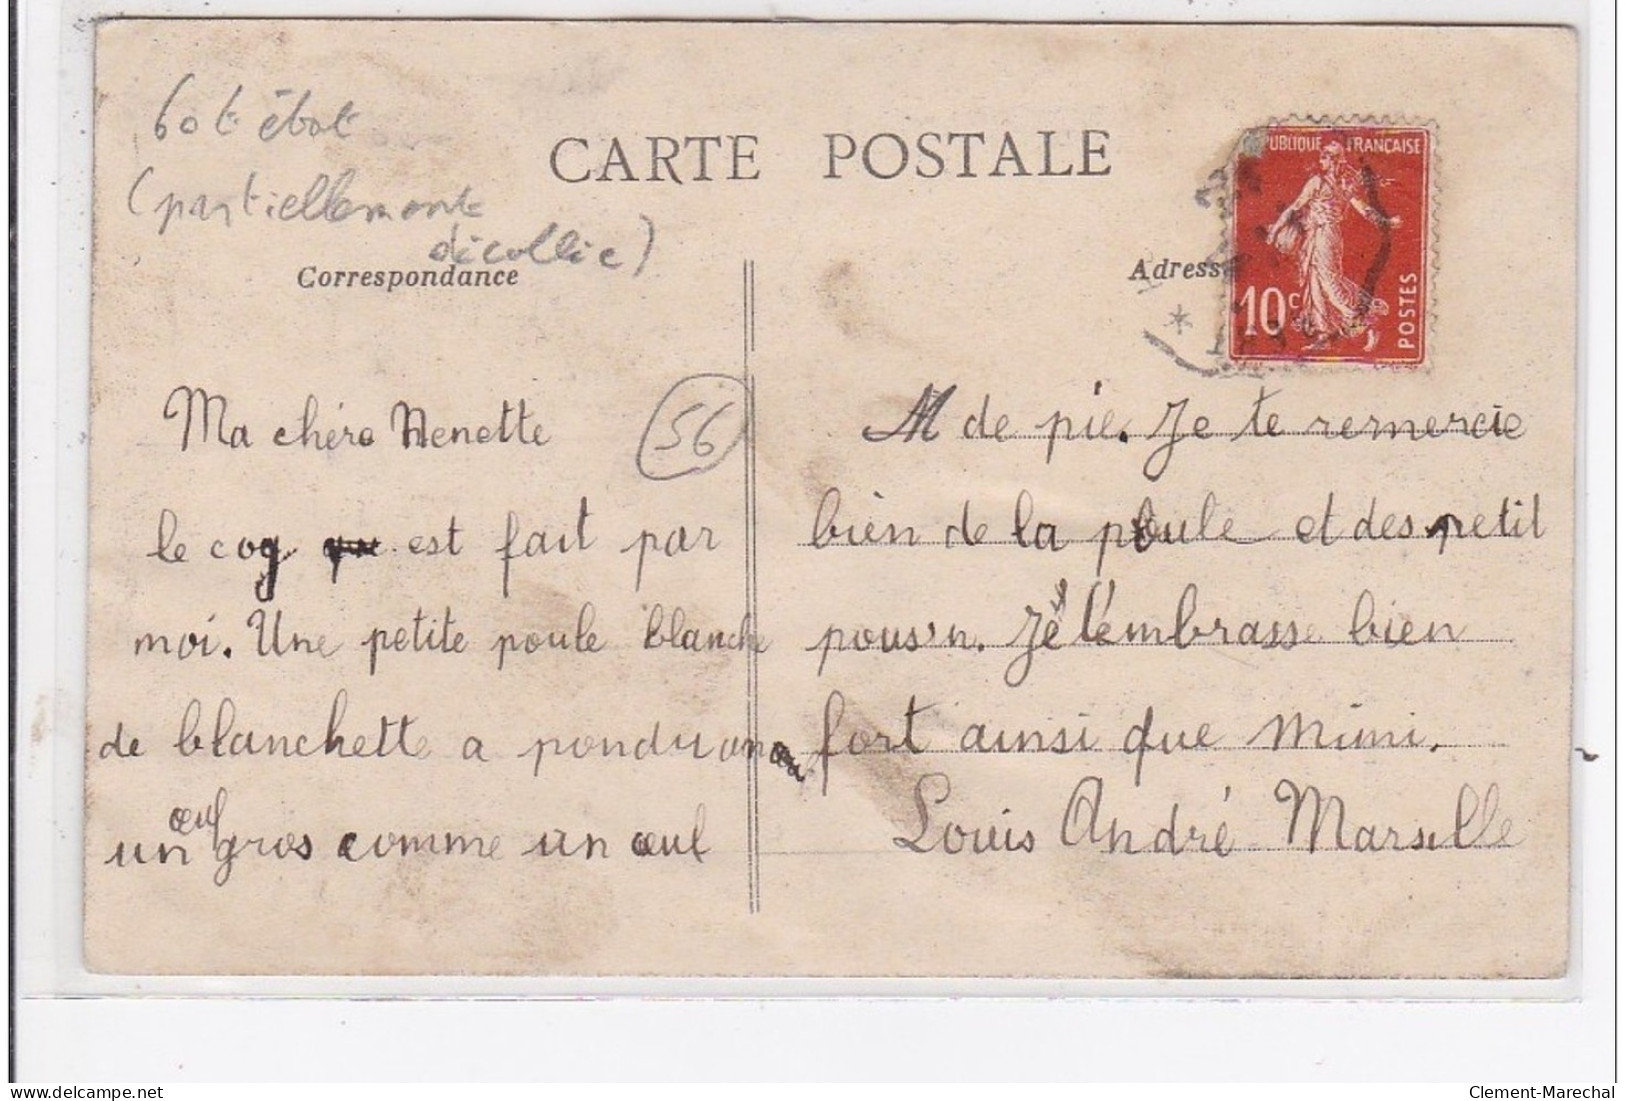 bot état
(partiellement
décollée)
CARTE POSTALE
RÉPUBLIQUE FRANÇAISE
10c
POSTES
Correspondance
Adresse
56
Ma chère Nenette
le coq est fait par
moi. Une petite poule blanche
de blanchette a pondu
un œuf gros comme un œuf
M de pie. Je te remercie
bien de la poule et des petit
poussn. Je t'embrasse bien
fort ainsi que Mimi.
Louis André Marselle
delcampe.net
Clement-Marechal